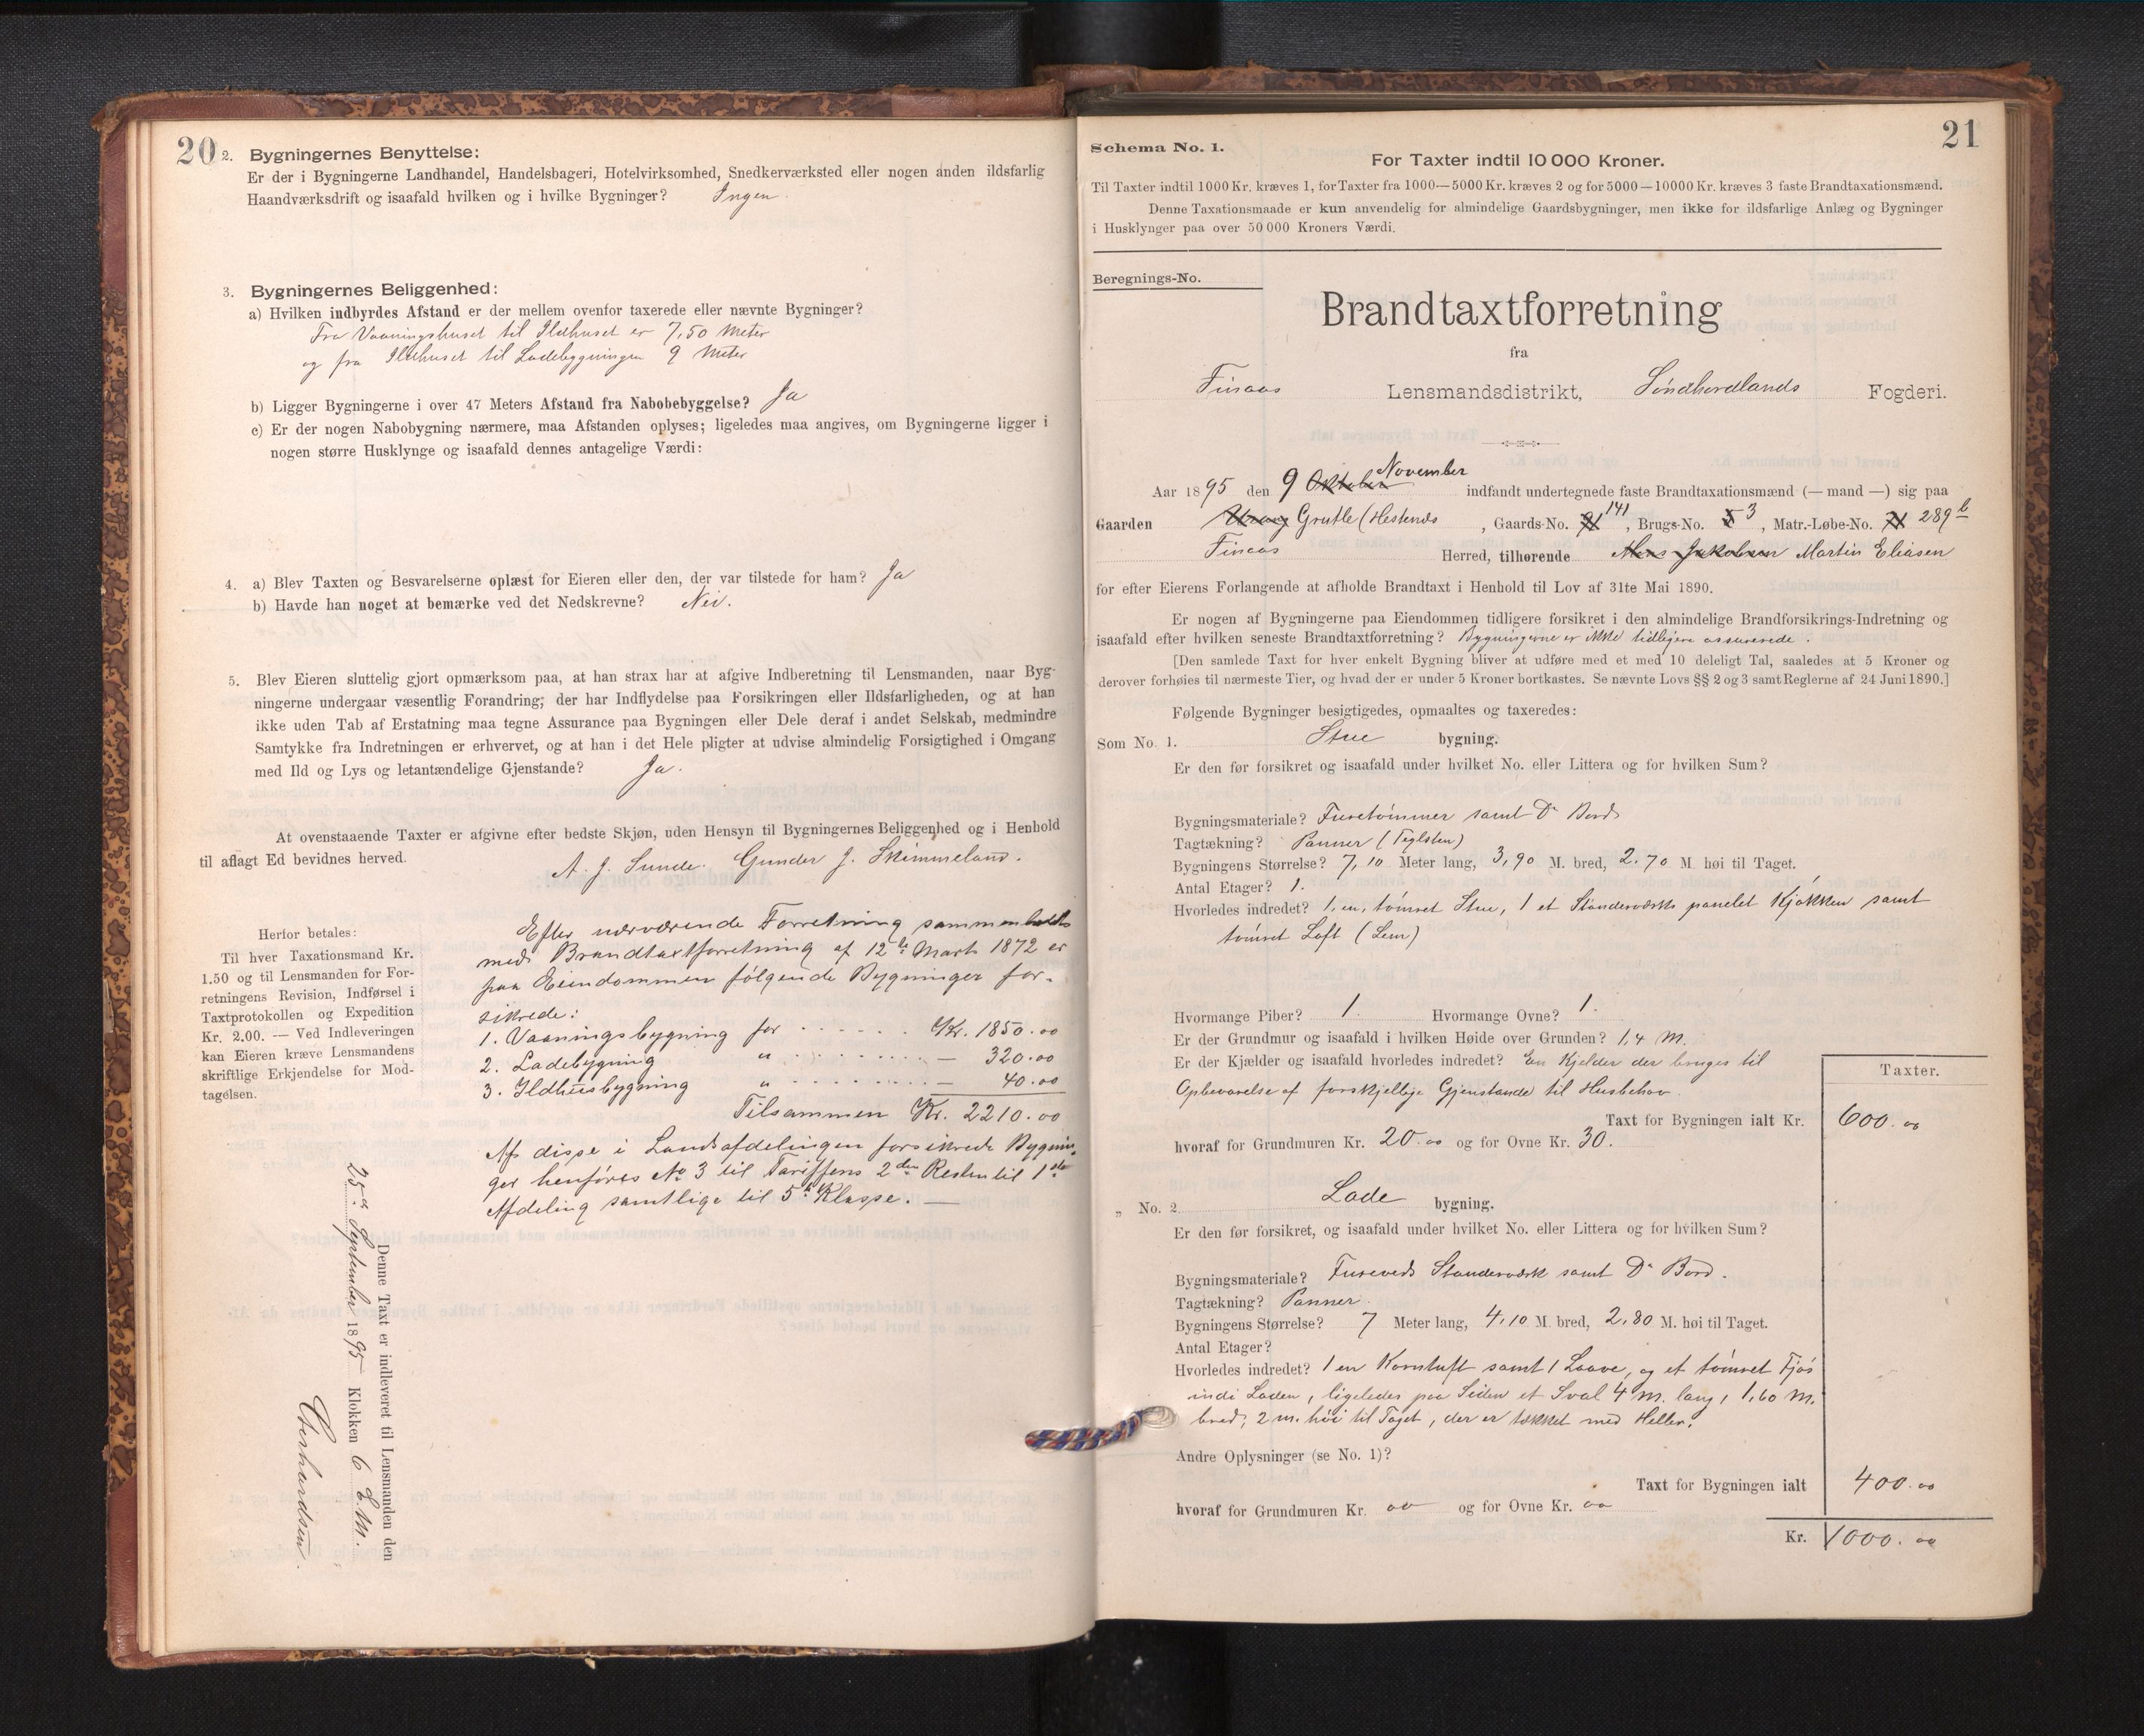 20
2. Bygningernes Benyttelse:
Er der i Bygningerne Landhandel, Handelsbageri, Hotelvirksomhed, Snedkerværksted eller nogen anden ildsfarlig
Haandværksdrift og isaafald hvilken og i hvilke Bygninger? Ingen.
3. Bygningernes Beliggenhed:
a) Hvilken indbyrdes Afstand er der mellem ovenfor taxerede eller nævnte Bygninger?
Fra Vaaningshuset til Ildhuset er 7,50 Meter
og fra Ildhuset til Ladebygningen 9 Meter
b) Ligger Bygningerne i over 47 Meters Afstand fra Nabobebyggelse? Ja
c) Er der nogen Nabobygning nærmere, maa Afstanden oplyses; ligeledes maa angives, om Bygningerne ligger i
nogen større Husklynge og isaafald dennes antagelige Værdi:
4. a) Blev Taxten og Besvarelserne oplæst for Eieren eller den, der var tilstede for ham? Ja
b) Havde han noget at bemærke ved det Nedskrevne? Nei.
5. Blev Eieren sluttelig gjort opmærksom paa, at han strax har at afgive Indberetning til Lensmanden, naar Byg-
ningerne undergaar væsentlig Forandring; der har Indflydelse paa Forsikringen eller Ildsfarligheden, og at han
ikke uden Tab af Erstatning maa tegne Assurance paa Bygningen eller Dele deraf i andet Selskab, medmindre
Samtykke fra Indretningen er erhvervet, og at han i det Hele pligter at udvise almindelig Forsigtighed i Omgang
med Ild og Lys og letantændelige Gjenstande? Ja.
At ovenstaaende Taxter er afgivne efter bedste Skjøn, uden Hensyn til Bygningernes Beliggenhed og i Henhold
til aflagt Ed bevidnes herved.
A. J. Sunde. Gunder J. Skimmeland.
Herfor betales:
Til hver Taxationsmand Kr.
1.50 og til Lensmanden for For-
retningens Revision, Indførsel i
Taxtprotokollen og Expedition
Kr. 2.00. — Ved Indleveringen
kan Eieren kræve Lensmandens
skriftlige Erkjendelse for Mod-
tagelsen.
Efter nærværende Forretning sammenholdt
med Brandtaxtforretning af 12te Marts 1872 er
paa Eiendommen følgende Bygninger for-
sikrede:
1. Vaaningsbygning for . . . . . . Kr. 1850.00
2. Ladebygning " . . . . . . . . — 320.00
3. Ildhusbygning " . . . . . . . . — 40.00
Tilsammen Kr. 2210.00
Af disse i Landsafdelingen forsikrede Bygnin-
ger henføres No 3 til Tariffens 2den Resten til 1ste
Afdeling samtlige til 5te Klasse. —
Denne Taxt er indleveret til Lensmanden den
25de September 1895 Klokken 6 E.M.
21
Schema No. 1.
For Taxter indtil 10 000 Kroner.
Til Taxter indtil 1000 Kr. kræves 1, for Taxter fra 1000—5000 Kr. kræves 2 og for 5000—10000 Kr. kræves 3 faste Brandtaxationsmænd.
Denne Taxationsmaade er kun anvendelig for almindelige Gaardsbygninger, men ikke for ildsfarlige Anlæg og Bygninger
i Husklynger paa over 50 000 Kroners Værdi.
Beregnings-No.
Brandtaxtforretning
fra
Finaas Lensmandsdistrikt, Søndhordlands Fogderi.
November
Aar 1895 den 9 Oktober indfandt undertegnede faste Brandtaxationsmænd (— mand —) sig paa
Gaarden Grutle (Hestenes , Gaards-No. 141, Brugs-No. 3, Matr.-Løbe-No. 289b
Finaas Herred, tilhørende Jakobsen Martin Eliasen
for efter Eierens Forlangende at afholde Brandtaxt i Henhold til Lov af 31te Mai 1890.
Er nogen af Bygningerne paa Eiendommen tidligere forsikret i den almindelige Brandforsikrings-Indretning og
isaafald efter hvilken seneste Brandtaxtforretning? Bygningerne er ikke tidligere assurerede.
[Den samlede Taxt for hver enkelt Bygning bliver at udføre med et med 10 deleligt Tal, saaledes at 5 Kroner og
derover forhøies til nærmeste Tier, og hvad der er under 5 Kroner bortkastes. Se nævnte Lovs §§ 2 og 3 samt Reglerne af 24 Juni 1890.]
Følgende Bygninger besigtigedes, opmaaltes og taxeredes:
Som No. 1. Stue bygning.
Er den før forsikret og isaafald under hvilket No. eller Littera og for hvilken Sum?
Bygningsmateriale? Furetømmer samt Do Bord
Tagtækning? Panner (Teglsten)
Bygningens Størrelse? 7,10 Meter lang, 3,90 M. bred, 2.70 M. høi til Taget.
Antal Etager? 1.
Hvorledes indredet? 1, en, tømret Stue, 1 et Standeværks panelet Kjøkken samt
tømret Loft (Lem)
Hvormange Piber? 1. Hvormange Ovne? 1.
Er der Grundmur og isaafald i hvilken Høide over Grunden? 1,4 M.
Er der Kjælder og isaafald hvorledes indredet? En Kjelder der bruges til
Opbevarelse af forskjellige Gjenstande til Husbehov
Taxter.
Taxt for Bygningen ialt Kr. 600.00
hvoraf for Grundmuren Kr. 20.00 og for Ovne Kr. 30.
„ No. 2. Lade bygning.
Er den før forsikret, og isaafald under hvilket No. eller Littera og for hvilken Sum?
Bygningsmateriale? Fureveds Standeværk samt Do Bord.
Tagtækning? Panner.
Bygningens Størrelse? 7 Meter lang, 4,10 M. bred, 2,80 M. høi til Taget.
Antal Etager?
Hvorledes indredet? 1 en Kornluft samt 1 Laave, og et tømret Fjøs
indi Laden, ligeledes paa Siden et Sval 4 M. lang, 1,60 M.
bred, 2 m. høi til Taget, der er tækket med Heller.
Andre Oplysninger (se No. 1)?
Taxt for Bygningen ialt 400.00
hvoraf for Grundmuren Kr. 00 og for Ovne Kr. 00
Kr. 1000.00